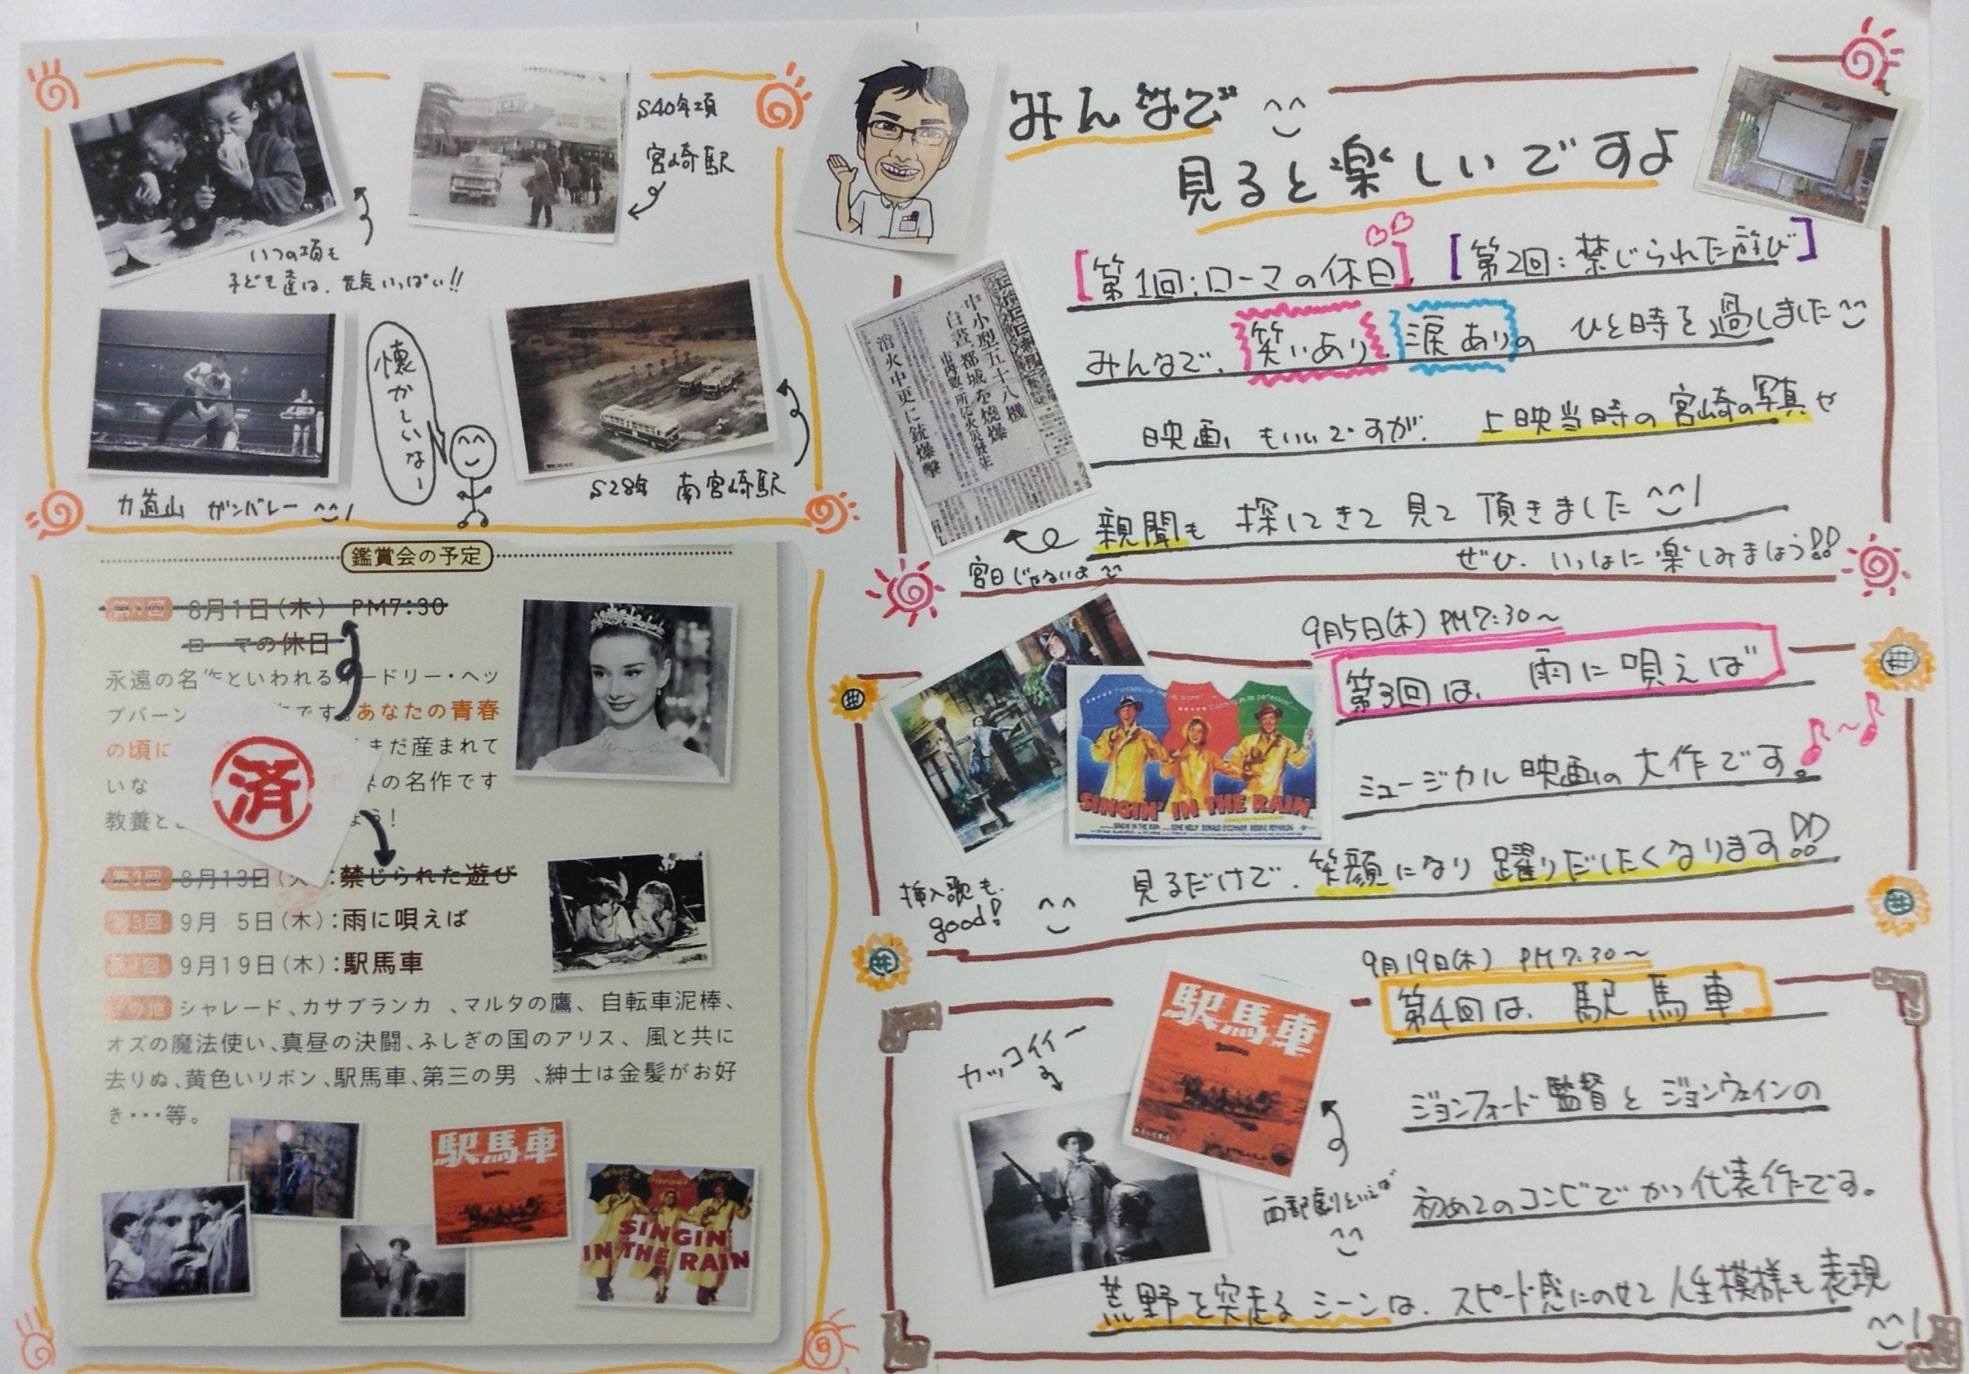 S40年頃
宮崎駅
いつの頃も
子ども達は、元気いっぱい!!
懐かしいなー
力道山 ガンバレー
S28年 南宮崎駅
鑑賞会の予定
8月1日(木) PM7:30
ローマの休日
永遠の名 といわれる ードリー・ヘッ
プバーン です。あなたの青春
の頃に まだ産まれて
いな 界の名作です
教養と よう!
済
第2回 8月13日(火):禁じられた遊び
第3回 9月 5日(木):雨に唄えば
第4回 9月19日(木):駅馬車
その他 シャレード、カサブランカ 、マルタの鷹、 自転車泥棒、
オズの魔法使い、真昼の決闘、ふしぎの国のアリス、 風と共に
去りぬ、黄色いリボン、駅馬車、第三の男 、紳士は金髪がお好
き・・・等。
駅馬車
SINGIN'
IN THE RAIN
みんなで
見ると楽しいですよ
[第1回:ローマの休日] [第2回:禁じられた遊び]
みんなで、笑いあり 涙ありの ひと時を過しました
映画もいいですが、上映当時の宮崎の写真や
新聞も 探してきて 見て 頂きました
ぜひ、いっしょに楽しみましょう!!
中小型五十八機
白昼、都城を焼爆
市内数ヶ所に火災発生
消火中更に銃爆撃
宮日じゃないよ
9月5日(木) PM7:30〜
第3回は、雨に唄えば
ミュージカル映画の大作です。
見るだけで、笑顔になり 躍りだしたくなります!!
SINGIN' IN THE RAIN
挿入歌も
good!
9月19日(木) PM7:30〜
第4回は、駅馬車
ジョンフォード監督とジョンウェインの
初めてのコンビでかつ代表作です。
荒野を突走るシーンは、スピード感にのせて人生模様も表現
カッコイイー
駅馬車
西部劇といえば